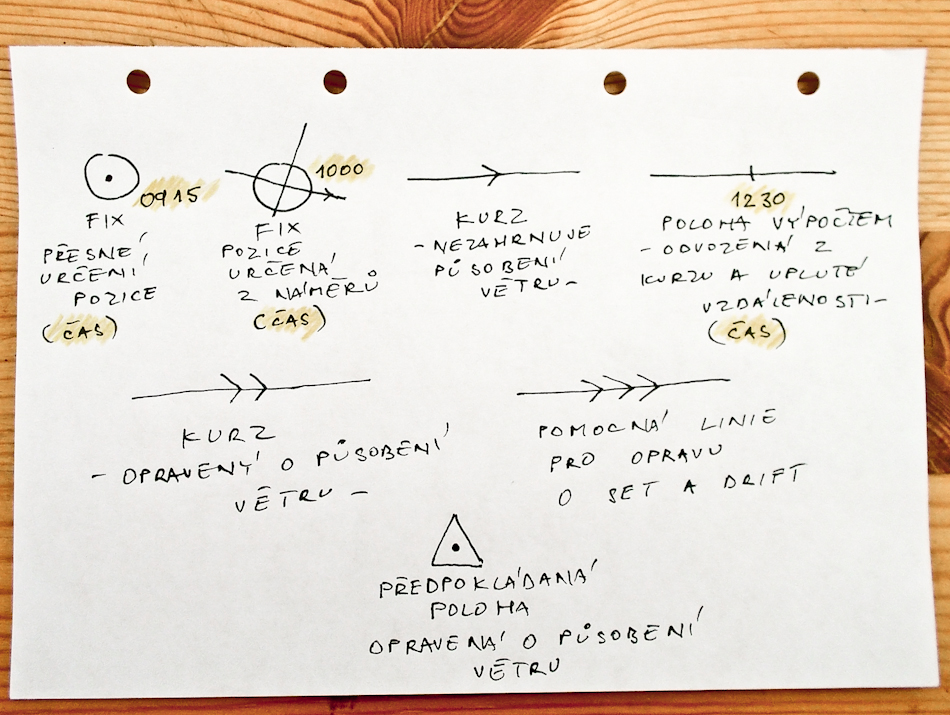 0915
FIX
PŘESNÉ
URČENÍ
POZICE
(ČAS)
1000
FIX
POZICE
URČENÁ
Z NÁMĚRŮ
(ČAS)
KURZ
- NEZAHRNUJE
PŮSOBENÍ
VĚTRU -
1230
POLOHA VÝPOČTEM
- ODVOZENÁ Z
KURZU A UPLUTÉ
VZDÁLENOSTI -
(ČAS)
KURZ
- OPRAVENÝ O PŮSOBENÍ
VĚTRU -
POMOCNÁ LINIE
PRO OPRAVU
O SET A DRIFT
PŘEDPOKLÁDANÁ
POLOHA
OPRAVENÁ O PŮSOBENÍ
VĚTRU